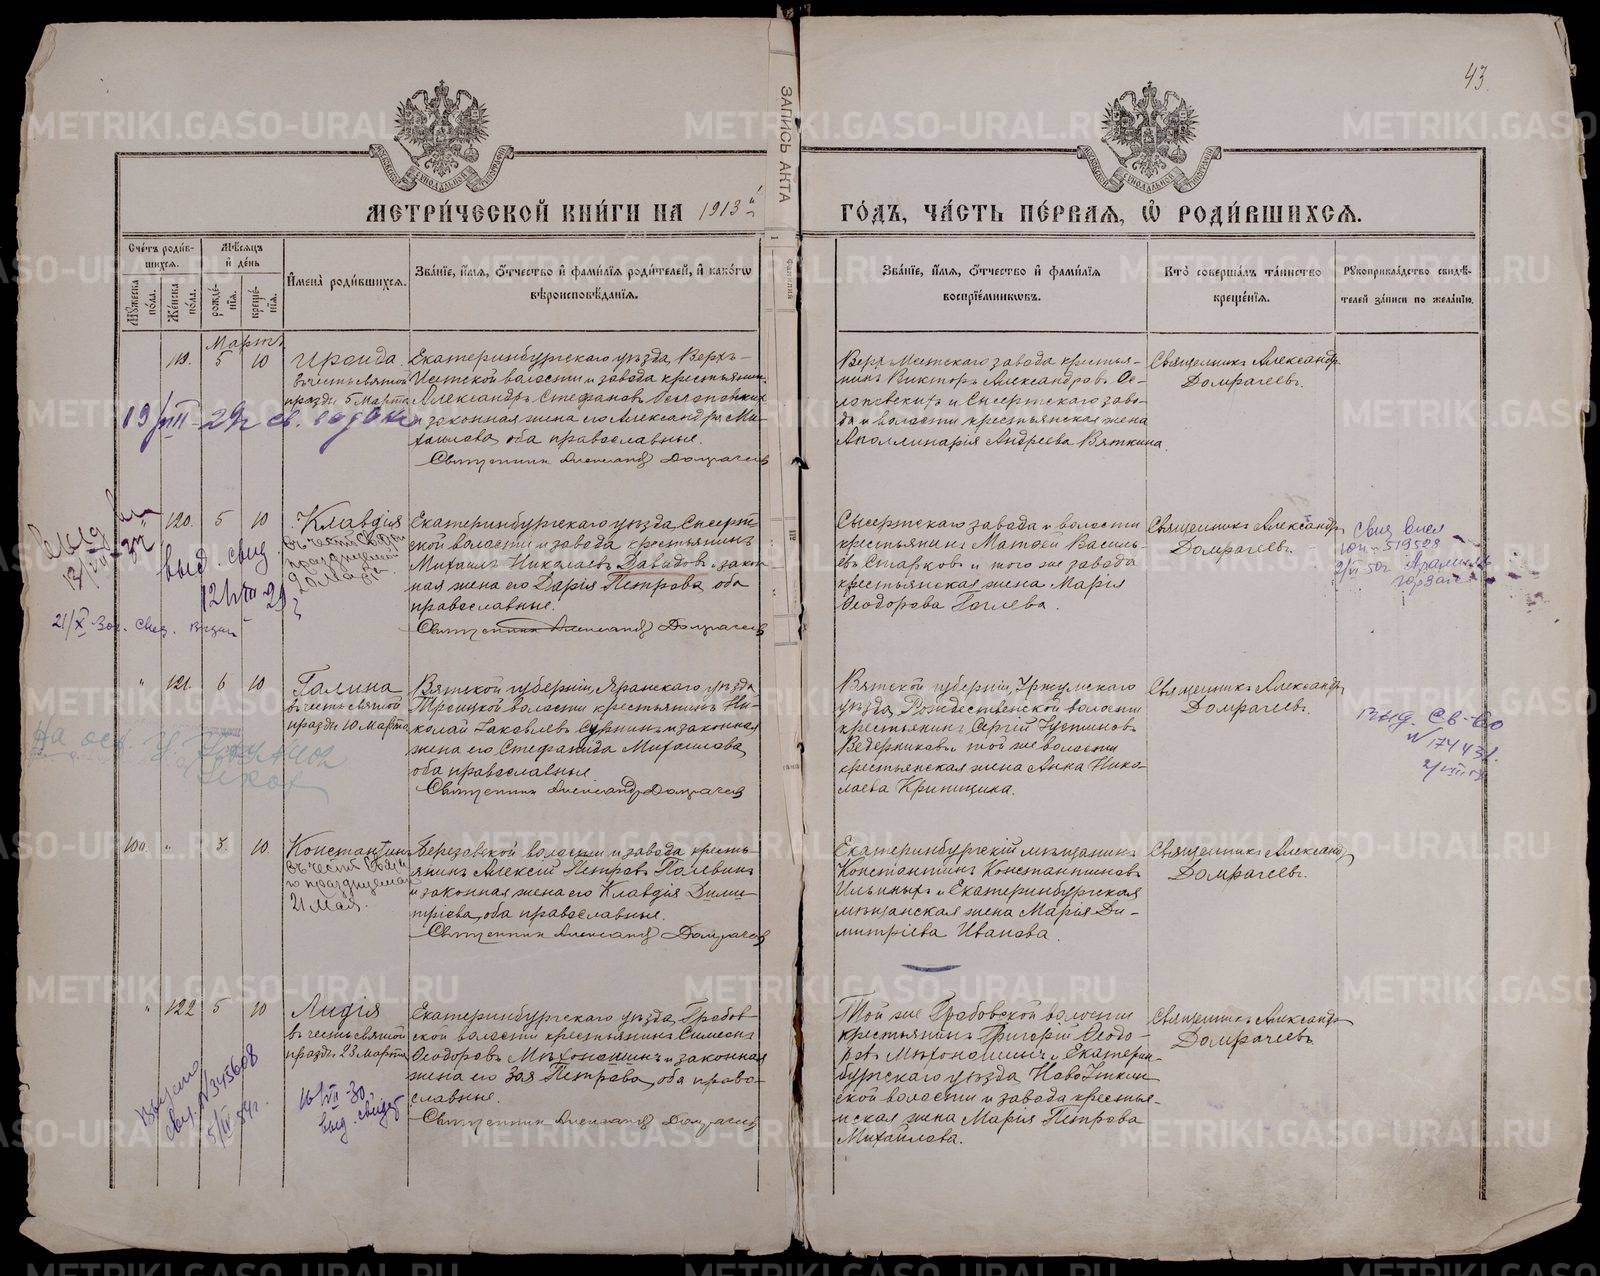 43.
МЕТРИ́ЧЕСКОЙ КНИ́ГИ НА 1913 й
ГО́ДЪ, ЧА́СТЬ ПЕ́РВАЯ, Ѽ РОДИ́ВШИХСЯ.
ЗАПИСЬ АКТА
Сче́тъ роди́в-
шихся.
Мѣ́сяцъ
и де́нь
Мꙋ́жеска по́ла.
Же́нска по́ла.
рожде́-
нїя.
креще́-
нїя.
И҆мена̀ роди́вшихся.
Зва́нїе, и҆́мя, ѻ҆́тчество и҆ фами́лїя роди́телей, и҆ како́гѡ
вѣроисповѣ́данїя.
Зва́нїе, и҆́мя, ѻ҆́тчество и҆ фами́лїя
воспрїе́мникѡвъ.
Кто̀ соверша́лъ та́инство
креще́нїя.
Рꙋкоприкла́дство свидѣ́-
телей за́писи по жела́нїю.
Мартъ
119. 5 10
Ираида
въ честь святой
праздн. 5 Марта
Екатеринбургскаго уѣзда, Верхъ-
Исетской волости и завода крестьянинъ
Александръ Стефановъ
и законная жена его Александра Ми-
хаилова, оба православные.
Священникъ Александръ Домрачевъ
Верх-Исетскаго завода крестья-
нинъ Викторъ Александровъ
и Сысертскаго заво-
да и волости крестьянская жена
Аполлинарія Андреева Вяткина.
Священникъ Александръ
Домрачевъ.
120. 5 10
Клавдія
въ честь святой
празднуемой
Екатеринбургскаго уѣзда, Сысерт-
ской волости и завода крестьянинъ
Михаилъ Николаевъ Давидовъ и закон-
ная жена его Дарія Петрова, оба
православные.
Священникъ Александръ Домрачевъ
Сысертскаго завода и волости
крестьянинъ Матѳей Василь-
евъ Старковъ и того же завода
крестьянская жена Марія
Ѳеодорова
Священникъ Александръ
Домрачевъ.
выд. свид.
21/X 30г. свид. выдан
121. 6 10
Галина
въ честь святой
праздн. 10 Марта
Вятской губерніи, Яранскаго уѣзда
Троицкой волости крестьянинъ Ни-
колай Іаковлевъ и законная
жена его Стефанида Михаилова,
оба православные.
Священникъ Александръ Домрачевъ
Вятской губерніи, Уржумскаго
уѣзда, Рождественской волости
крестьянинъ Сергій Іустиновъ
Ведерниковъ и той же волости
крестьянская жена Анна Нико-
лаева
Священникъ Александръ
Домрачевъ.
Выд. св-во
100. " 3. 10
Константинъ
въ честь свята-
го празднуемаго
21 Мая.
Березовской волости и завода кресть-
янинъ Алексій Петровъ Полевинъ
и законная жена его Клавдія Дими-
тріева, оба православные.
Священникъ Александръ Домрачевъ
Екатеринбургскій мѣщанинъ
Константинъ Константиновъ
Ильиныхъ и Екатеринбургская
мѣщанская жена Марія Ди-
митріева Иванова.
Священникъ Александръ
Домрачевъ.
" 122 5 10
Лидія
въ честь святой
праздн. 23 Марта
Екатеринбургскаго уѣзда, Гробов-
ской волости крестьянинъ Симеонъ
Ѳеодоровъ Мѣхоношинъ и законная
жена его Зоя Петрова, оба право-
славные.
Священникъ Александръ Домрачевъ
Той же Гробовской волости
крестьянинъ Григорій Ѳеодо-
ровъ Мѣхоношинъ и Екатерин-
бургскаго уѣзда, Ново-Уткин-
ской волости и завода крестья-
нская жена Марія Петрова
Михайлова.
Священникъ Александръ
Домрачевъ
16/VII-30
выд. свидет
METRIKI.GASO-URAL.RU